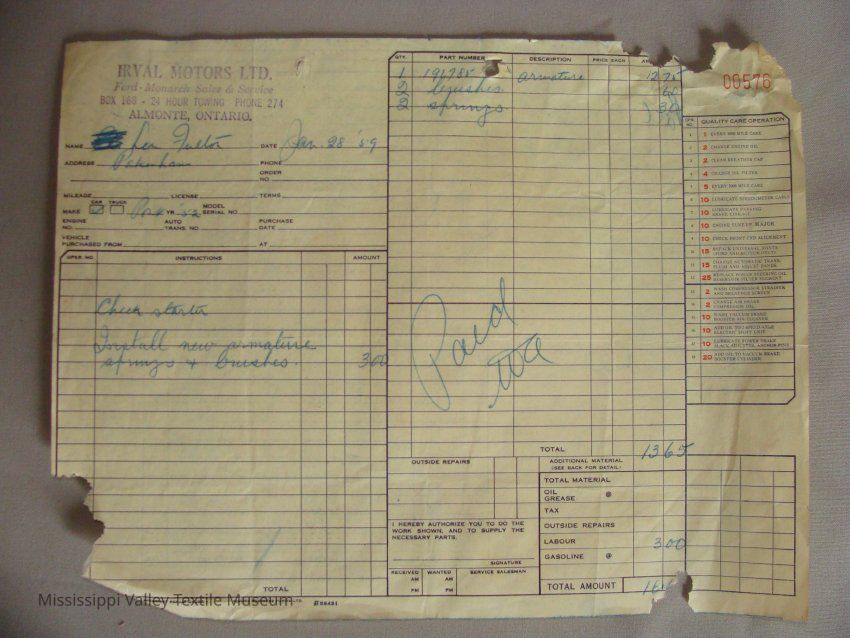 IRVAL MOTORS LTD.
Ford - Monarch Sales & Service
BOX 168 - 24 HOUR TOWING PHONE 274
ALMONTE, ONTARIO.
NAME Len Fulton DATE Jan. 28 '59
ADDRESS Pakenham PHONE
ORDER NO.
MILEAGE LICENSE TERMS
CAR TRUCK
MAKE YR. 52 MODEL SERIAL NO
ENGINE NO. AUTO TRANS. NO. PURCHASE DATE
VEHICLE PURCHASED FROM AT
OPER. NO. INSTRUCTIONS AMOUNT
Check starter
Install new armature
springs & brushes. 3.00
TOTAL
QTY. PART NUMBER DESCRIPTION PRICE EACH
1 196785 armature 12.75
2 brushes
2 springs 30
Paid
TOTAL 13.65
OUTSIDE REPAIRS
ADDITIONAL MATERIAL
(SEE BACK FOR DETAIL)
TOTAL MATERIAL
OIL
GREASE @
TAX
OUTSIDE REPAIRS
LABOUR 3.00
GASOLINE @
TOTAL AMOUNT
I HEREBY AUTHORIZE YOU TO DO THE
WORK SHOWN, AND TO SUPPLY THE
NECESSARY PARTS.
SIGNATURE
RECEIVED WANTED SERVICE SALESMAN
AM AM
PM PM
00576
QUALITY CARE OPERATION
1 EVERY 1000 MILE CARE
2 CHANGE ENGINE OIL
2 CLEAN BREATHER CAP
4 CHANGE OIL FILTER
5 EVERY 5000 MILE CARE
10 LUBRICATE SPEEDOMETER CABLE
10 LUBRICATE PARKING
BRAKE LINKAGE
10 ENGINE TUNE-UP MAJOR
10 CHECK FRONT END ALIGNMENT
15 REPACK UNIVERSAL JOINTS
15 CHANGE AUTOMATIC TRANS.
FLUID AND ADJUST BANDS
25 REPLACE POWER STEERING OIL
RESERVOIR FILTER ELEMENT
2 WASH COMPRESSOR STRAINER
AND BREATHER SCREEN
2 CHANGE AIR BRAKE
COMPRESSOR OIL
10 WASH VACUUM BRAKE
BOOSTER AIR CLEANER
10 ADD OIL TO 2 SPEED AXLE
ELECTRIC SHIFT UNIT
10 LUBRICATE POWER BRAKE
20 ADD OIL TO VACUUM BRAKE
BOOSTER CYLINDER
Mississippi Valley Textile Museum